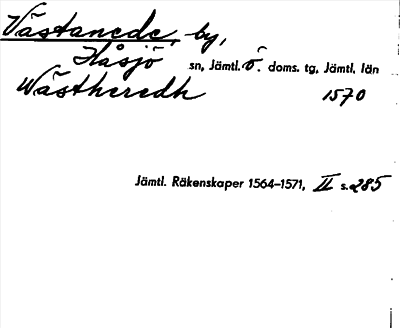 Västanede, by,
Håsjö sn, Jämtl. ö. doms. tg, Jämtl. län
Wästheredh 1570
Jämtl. Räkenskaper 1564–1571, II s. 285